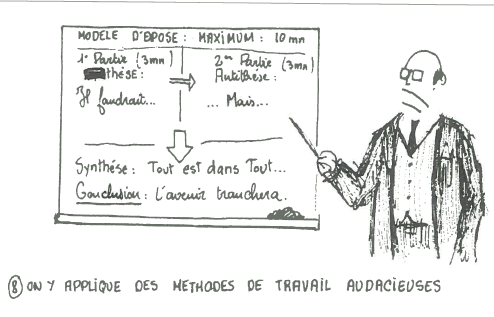 MODELE D'EPOSE : MAXIMUM : 10 mn
1e Partie (3mn)
thése :
Il faudrait...
2em Partie (3mn)
Antithèse :
... Mais...
Synthése : Tout est dans Tout...
Conclusion : L'avenir tranchera.
8 ON Y APPLIQUE DES METHODES DE TRAVAIL AUDACIEUSES